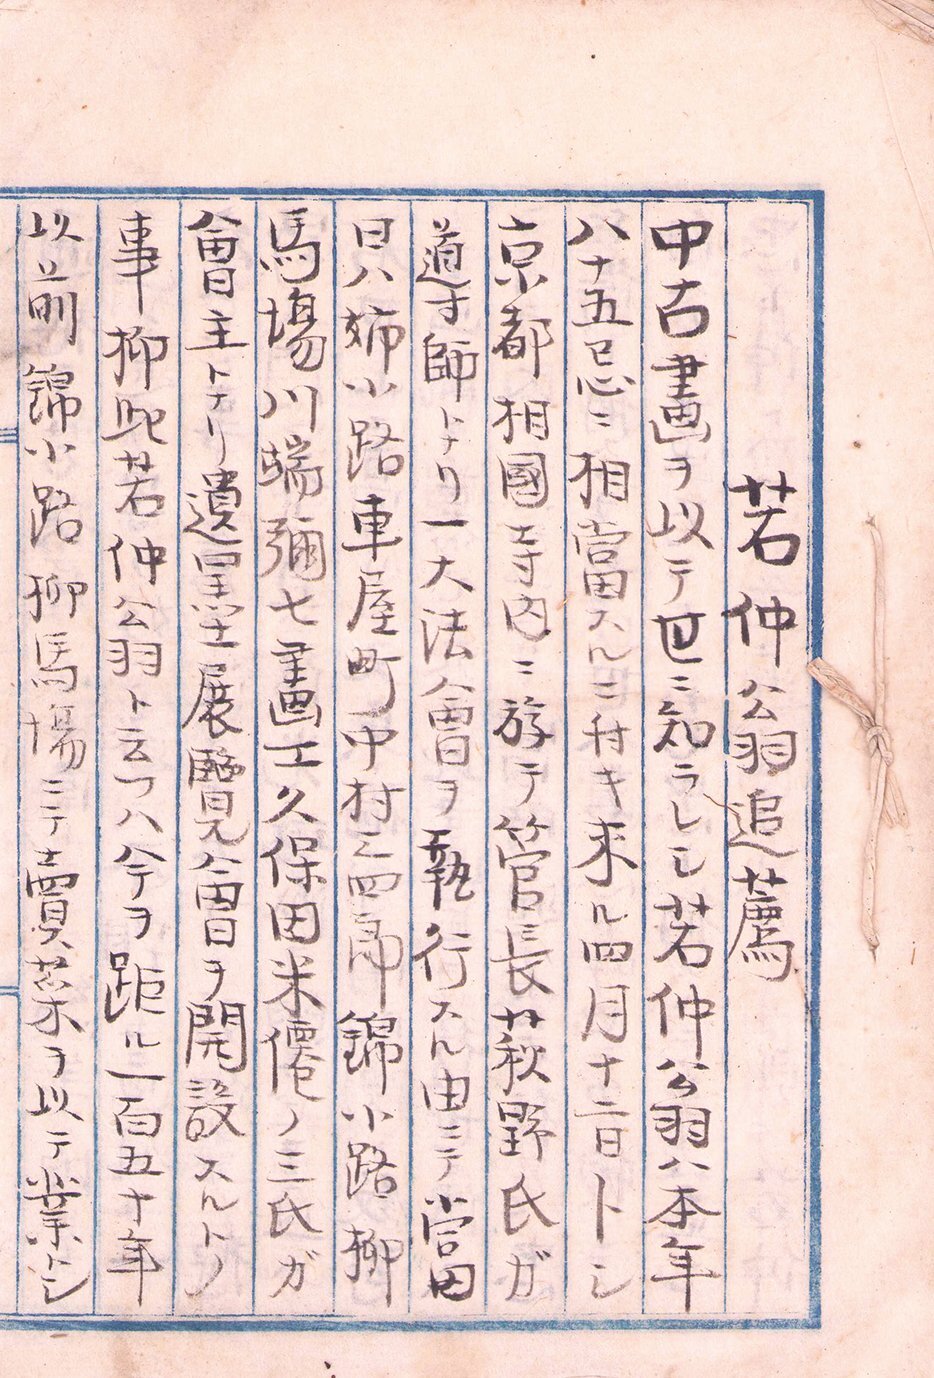 若仲公翁追薦
中古畫ヲ以テ世ニ知ラレシ若仲公翁ハ本年
八十五忌ニ相當スルニ付キ来ル四月十二日トシ
京都相國寺内ニ於テ管長萩野氏ガ
導師トナリ一大法會ヲ執行スル由ニテ當
日ハ姉小路車屋町中村三四郎錦小路柳
馬場川端彌七畫工久保田米僊ノ三氏ガ
會主トナリ遺墨展覽會ヲ開設スルトノ
事抑此若仲公翁ト云フハ今ヲ距ル一百五十年
以前錦小路柳馬場ニテ賣菜ヲ以テ業トシ